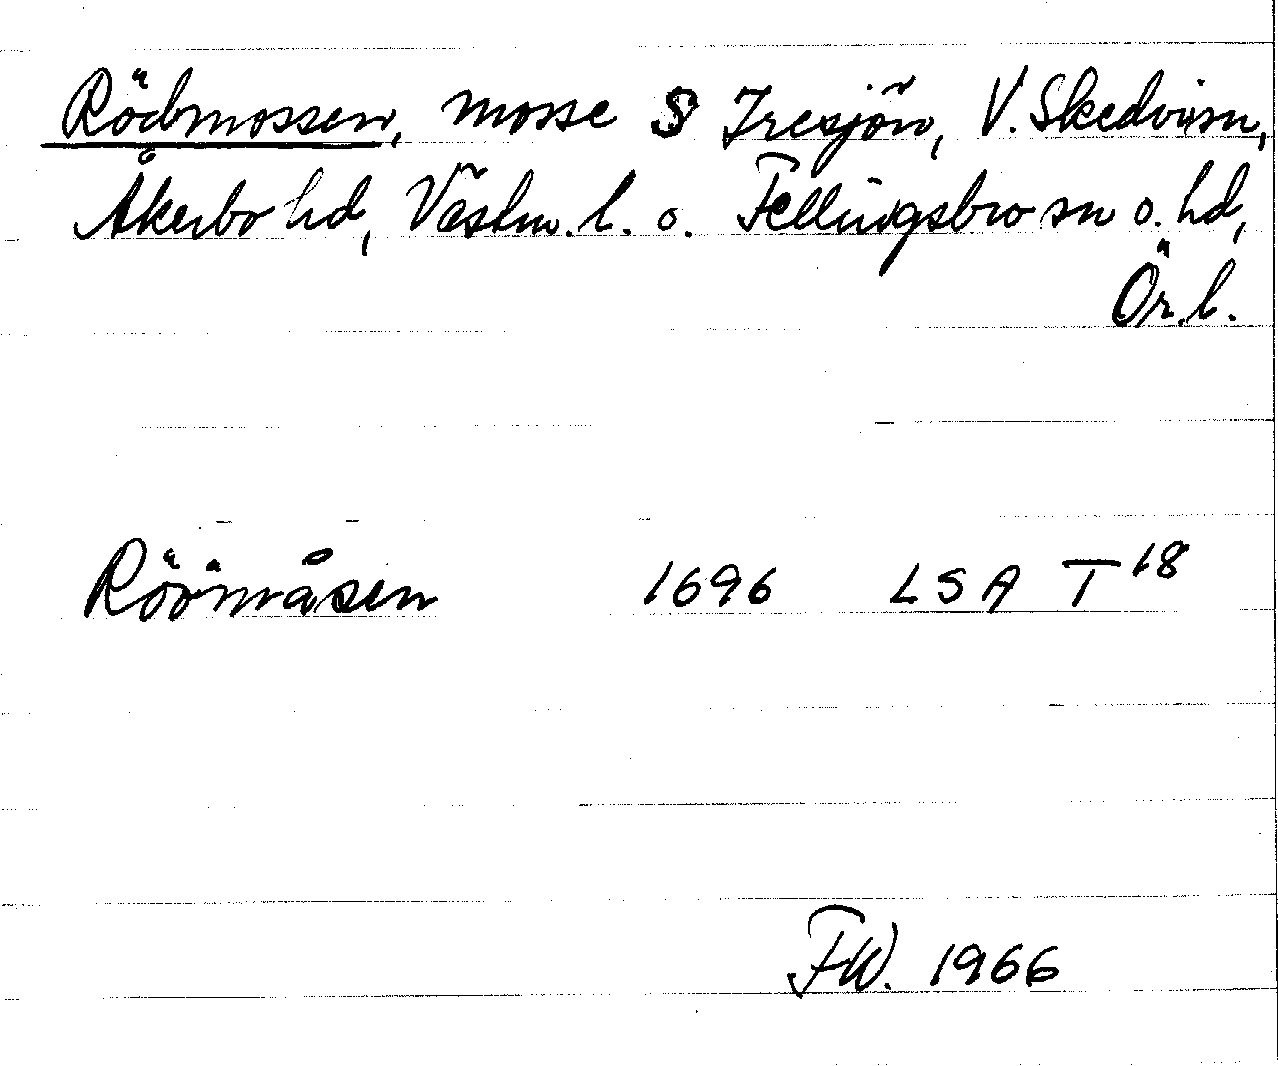 Rödmossen, mosse S Tresjön, V. Skedvi sn,
Åkerbo hd, Västm. l. o. Fellingsbro sn o. hd,
Ör. l.
Röömåsen 1696 LSA T 18
FW. 1966